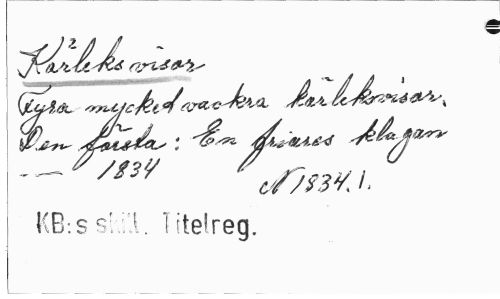 Kärleksvisor
Fyra mycket vackra kärleksvisor.
Den första: En friares klagan
— — 1834
N 1834.1.
KB:s skill. Titelreg.